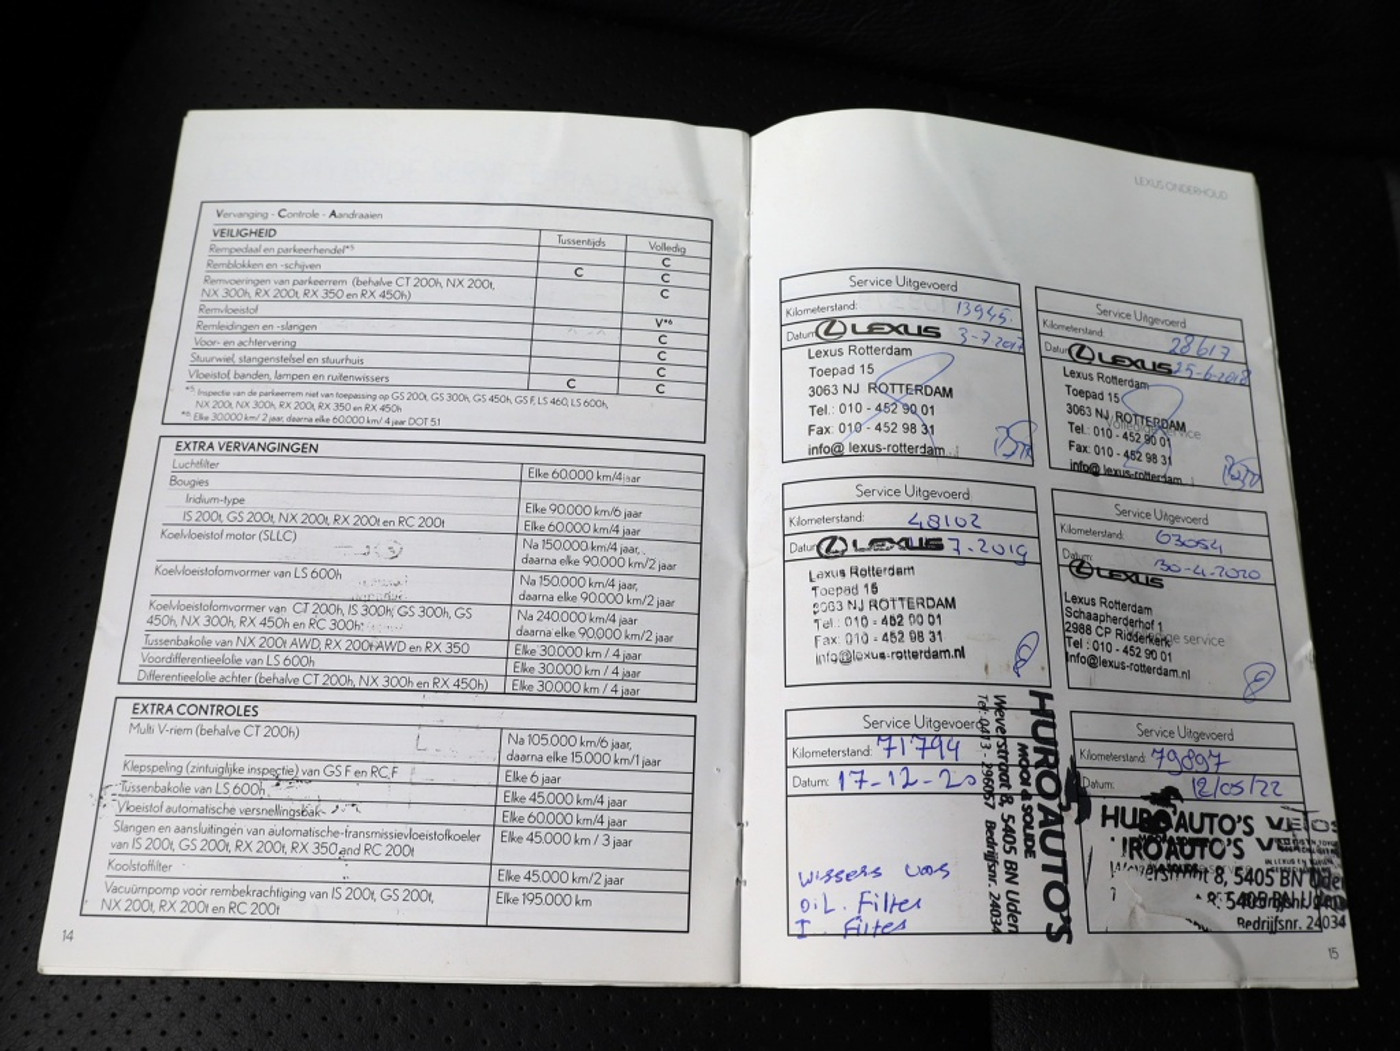 Vervanging - Controle - Aandraaien
VEILIGHEID Tussentijds Volledig
Rempedaal en parkeerhendel*5 C
Remblokken en -schijven C C
Remvoeringen van parkeerrem (behalve CT 200h, NX 200t,
NX 300h, RX 200t, RX 350 en RX 450h) C
Remvloeistof V*6
Remleidingen en -slangen C
Voor- en achtervering C
Stuurwiel, stangenstelsel en stuurhuis C
Vloeistof, banden, lampen en ruitenwissers C C
*5: Inspectie van de parkeerrem niet van toepassing op GS 200t, GS 300h, GS 450h, GS F, LS 460, LS 600h,
NX 200t, NX 300h, RX 200t, RX 350 en RX 450h
*6: Elke 30.000 km/ 2 jaar, daarna elke 60.000 km/ 4 jaar DOT 5.1
EXTRA VERVANGINGEN
Luchtfilter Elke 60.000 km/4 jaar
Bougies
Iridium-type Elke 90.000 km/6 jaar
IS 200t, GS 200t, NX 200t, RX 200t en RC 200t Elke 60.000 km/4 jaar
Koelvloeistof motor (SLLC) Na 150.000 km/4 jaar,
daarna elke 90.000 km/2 jaar
Koelvloeistofomvormer van LS 600h Na 150.000 km/4 jaar,
daarna elke 90.000 km/2 jaar
Koelvloeistofomvormer van CT 200h, IS 300h, GS 300h, GS
450h, NX 300h, RX 450h en RC 300h Na 240.000 km/4 jaar
daarna elke 90.000 km/2 jaar
Tussenbakolie van NX 200t AWD, RX 200t AWD en RX 350 Elke 30.000 km / 4 jaar
Voordifferentieelolie van LS 600h Elke 30.000 km / 4 jaar
Differentieelolie achter (behalve CT 200h, NX 300h en RX 450h) Elke 30.000 km / 4 jaar
EXTRA CONTROLES
Multi V-riem (behalve CT 200h) Na 105.000 km/6 jaar,
daarna elke 15.000 km/1 jaar
Klepspeling (zintuiglijke inspectie) van GS F en RC F Elke 6 jaar
Tussenbakolie van LS 600h Elke 45.000 km/4 jaar
Vloeistof automatische versnellingsbak Elke 60.000 km/4 jaar
Slangen en aansluitingen van automatische-transmissievloeistofkoeler
van IS 200t, GS 200t, RX 200t, RX 350 and RC 200t Elke 45.000 km / 3 jaar
Koolstoffilter Elke 45.000 km/2 jaar
Vacuümpomp voor rembekrachtiging van IS 200t, GS 200t,
NX 200t, RX 200t en RC 200t Elke 195.000 km
14
LEXUS ONDERHOUD
Service Uitgevoerd
Kilometerstand: 13945
Datum LEXUS 3-7-2017
Lexus Rotterdam
Toepad 15
3063 NJ ROTTERDAM
Tel.: 010 - 452 90 01
Fax: 010 - 452 98 31
info@lexus-rotterdam
Service Uitgevoerd
Kilometerstand: 28617
Datum LEXUS 25-6-2018
Lexus Rotterdam
Toepad 15
3063 NJ ROTTERDAM
Tel.: 010 - 452 90 01
Fax: 010 - 452 98 31
info@lexus-rotterdam
Service Uitgevoerd
Kilometerstand: 48102
Datum LEXUS 7-2019
Lexus Rotterdam
Toepad 15
3063 NJ ROTTERDAM
Tel.: 010 - 452 90 01
Fax: 010 - 452 98 31
info@lexus-rotterdam.nl
Service Uitgevoerd
Kilometerstand: 63054
Datum: 30-4-2020
LEXUS
Lexus Rotterdam
Schaapherderhof 1
2988 CP Ridderkerk
Tel : 010 - 452 90 01
Info@lexus-rotterdam.nl
Service Uitgevoerd
Kilometerstand: 71794
Datum: 17-12-20
wissers voor
OiL. Filter
I. Filter
HURO AUTO'S
MOOI & SOLIDE
Weverstraat 8, 5405 BN Uden
Tel: 0413 - 296067 Bedrijfsnr. 24034
Service Uitgevoerd
Kilometerstand: 79897
Datum: 12/05/22
HURO AUTO'S
RO AUTO'S
8, 5405 BN Uden
8, 5405 BN Uden
Bedrijfsnr. 24034
15